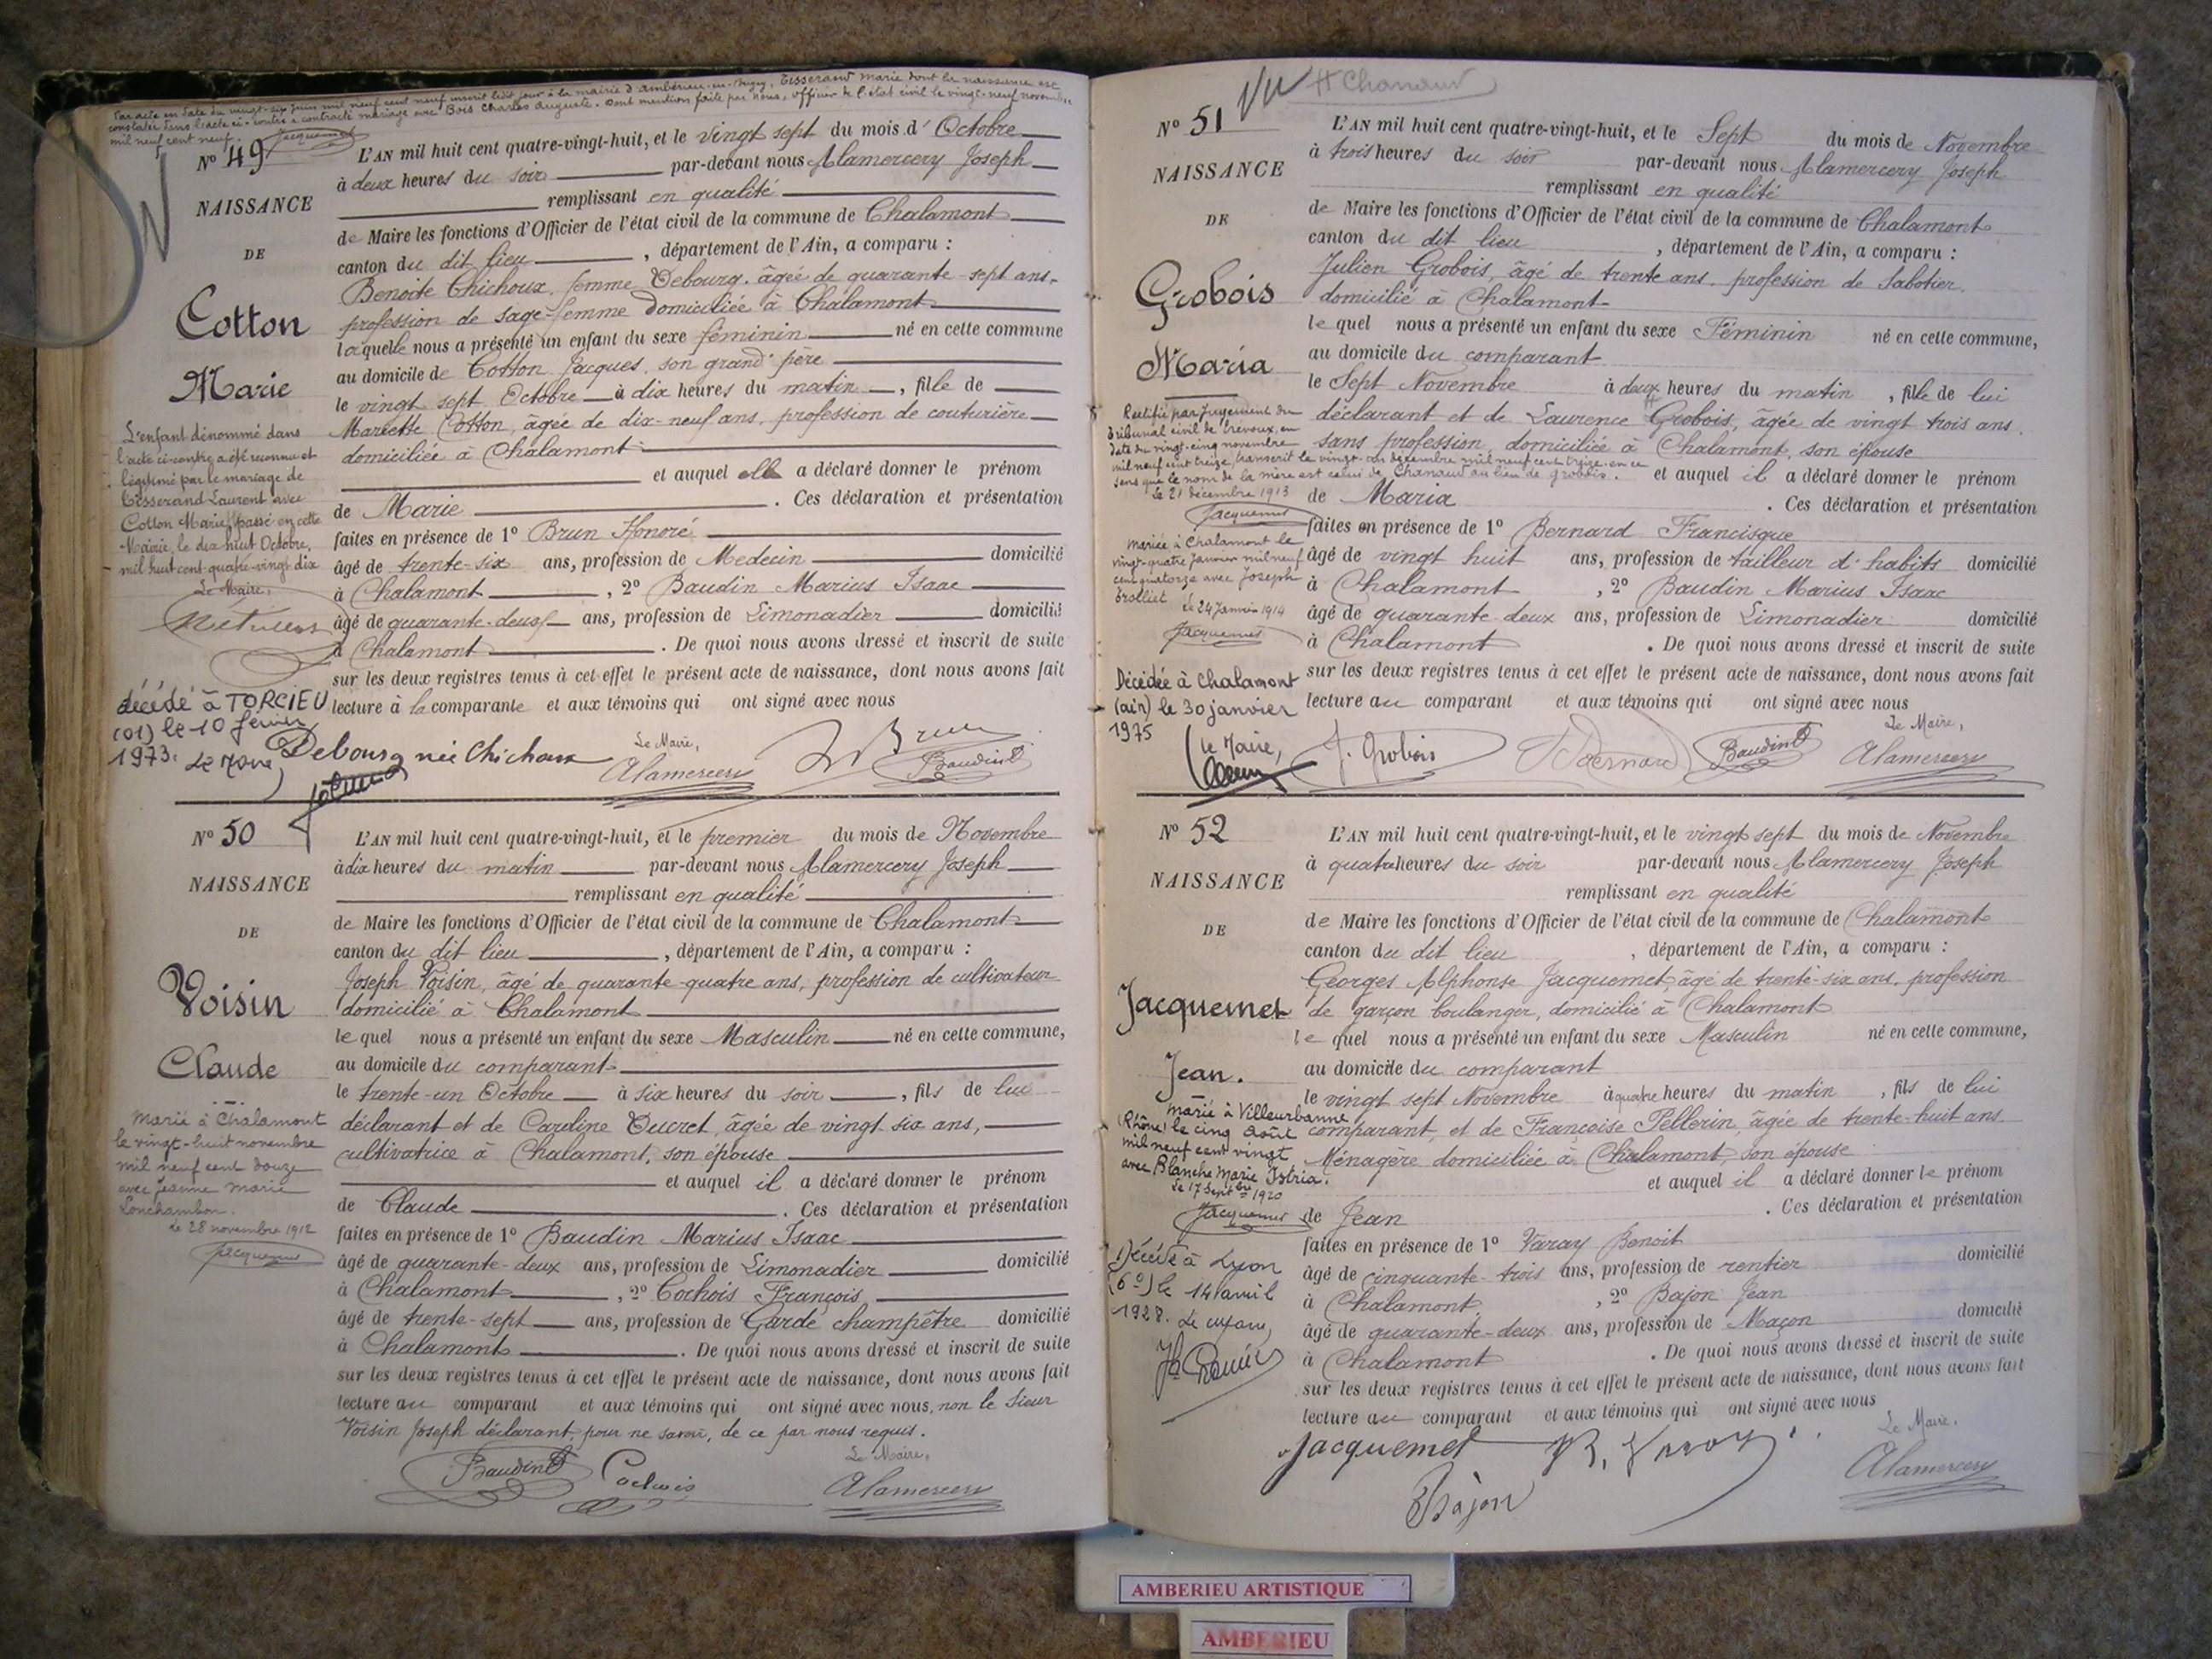 Par acte en date du vingt-six juin mil neuf cent neuf inscrit ledit jour à la mairie d'Ambérieu-en-Bugey, Tisserand Marie dont la naissance est
constatée dans l'acte ci-contre a contracté mariage avec Bois Charles Auguste. Dont mention faite par Nous, officier de l'état civil le vingt-neuf novembre
mil neuf cent neuf. Jacquemet
N° 49
NAISSANCE
DE
Cotton
Marie
L'enfant dénommé dans
l'acte ci-contre a été reconnu et
légitimé par le mariage de
Tisserand Laurent avec
Cotton Marie, passé en cette
Mairie, le dix huit Octobre,
mil huit cent quatre-vingt dix
Le Maire,
décédé à TORCIEU
(01) le 10 février
1973. Le Maire
L'AN mil huit cent quatre-vingt-huit, et le vingt sept du mois d'Octobre
à deux heures du soir par-devant nous Alamercery Joseph
remplissant en qualité
de Maire les fonctions d'Officier de l'état civil de la commune de Chalamont
canton du dit lieu, département de l'Ain, a comparu :
Benoite Chichoux, femme Debourg, âgée de quarante-sept ans,
profession de sage-femme domiciliée à Chalamont
laquelle nous a présenté un enfant du sexe féminin né en cette commune
au domicile de Cotton Jacques, son grand'père
le vingt sept Octobre à dix heures du matin, fille de
Mariette Cotton, âgée de dix-neuf ans, profession de couturière
domiciliée à Chalamont
et auquel elle a déclaré donner le prénom
de Marie. Ces déclaration et présentation
faites en présence de 1° Brun Honoré
âgé de trente-six ans, profession de Medecin domicilié
à Chalamont, 2° Baudin Marius Isaac
âgé de quarante-deux ans, profession de Limonadier domicilié
à Chalamont. De quoi nous avons dressé et inscrit de suite
sur les deux registres tenus à cet effet le présent acte de naissance, dont nous avons fait
lecture à la comparante et aux témoins qui ont signé avec nous
Debourg née Chichoux Le Maire, Alamercery Brun Baudin
N° 50
NAISSANCE
DE
Voisin
Claude
Marié à Chalamont
le vingt-huit novembre
mil neuf cent douze
avec Jeanne Marie
Lonchambon.
Le 28 novembre 1912
Jacquemet
L'AN mil huit cent quatre-vingt-huit, et le premier du mois de Novembre
à dix heures du matin par-devant nous Alamercery Joseph
remplissant en qualité
de Maire les fonctions d'Officier de l'état civil de la commune de Chalamont
canton du dit lieu, département de l'Ain, a comparu :
Joseph Voisin, âgé de quarante-quatre ans, profession de cultivateur
domicilié à Chalamont
lequel nous a présenté un enfant du sexe Masculin né en cette commune,
au domicile du comparant
le trente-un Octobre à six heures du soir, fils de lui
déclarant et de Caroline Ducret, âgée de vingt six ans,
cultivatrice à Chalamont, son épouse
et auquel il a déclaré donner le prénom
de Claude. Ces déclaration et présentation
faites en présence de 1° Baudin Marius Isaac
âgé de quarante-deux ans, profession de Limonadier domicilié
à Chalamont, 2° Cochois François
âgé de trente-sept ans, profession de Garde champêtre domicilié
à Chalamont. De quoi nous avons dressé et inscrit de suite
sur les deux registres tenus à cet effet le présent acte de naissance, dont nous avons fait
lecture au comparant et aux témoins qui ont signé avec nous, non le Sieur
Voisin Joseph déclarant, pour ne savoir, de ce par nous requis.
Baudin Cochois Le Maire, Alamercery
Vu # Chanaud
N° 51
NAISSANCE
DE
Grobois
Maria
Rectifié par jugement du
Tribunal civil de Trévoux, en
date du vingt-cinq novembre
mil neuf cent treize, transcrit le vingt-un décembre mil neuf cent treize en ce
sens que le nom de la mère est celui de Chanaud au lieu de Grobois.
le 21 décembre 1913
Jacquemet
Mariée à Chalamont le
vingt-quatre Janvier mil neuf
cent quatorze avec Joseph
Erolliet
le 24 Janvier 1914
Jacquemet
Décédée à Chalamont
(ain) le 30 janvier
1975
Le Maire,
L'AN mil huit cent quatre-vingt-huit, et le Sept du mois de Novembre
à trois heures du soir par-devant nous Alamercery Joseph
remplissant en qualité
de Maire les fonctions d'Officier de l'état civil de la commune de Chalamont
canton du dit lieu, département de l'Ain, a comparu :
Julien Grobois, âgé de trente ans, profession de Sabotier
domicilié à Chalamont
lequel nous a présenté un enfant du sexe Féminin né en cette commune,
au domicile du comparant
le Sept Novembre à deux heures du matin, fille de lui
déclarant et de Laurence # Grobois, âgée de vingt trois ans,
sans profession, domiciliée à Chalamont, son épouse
et auquel il a déclaré donner le prénom
de Maria. Ces déclaration et présentation
faites en présence de 1° Bernard Francisque
âgé de vingt huit ans, profession de tailleur d'habits domicilié
à Chalamont, 2° Baudin Marius Isaac
âgé de quarante deux ans, profession de Limonadier domicilié
à Chalamont. De quoi nous avons dressé et inscrit de suite
sur les deux registres tenus à cet effet le présent acte de naissance, dont nous avons fait
lecture au comparant et aux témoins qui ont signé avec nous
J. Grobois Bernard Baudin Le Maire, Alamercery
N° 52
NAISSANCE
DE
Jacquemet
Jean.
Marié à Villeurbanne
(Rhône) le cinq Août
mil neuf cent vingt
avec Blanche Marie Istria.
Le 17 septbre 1920
Jacquemet
Décédé à Lyon
(6e) le 14 avril
1928.
L'AN mil huit cent quatre-vingt-huit, et le vingt sept du mois de Novembre
à quatre heures du soir par-devant nous Alamercery Joseph
remplissant en qualité
de Maire les fonctions d'Officier de l'état civil de la commune de Chalamont
canton du dit lieu, département de l'Ain, a comparu :
Georges Alphonse Jacquemet, âgé de trente-six ans, profession
de garçon boulanger, domicilié à Chalamont
lequel nous a présenté un enfant du sexe Masculin né en cette commune,
au domicile du comparant
le vingt sept Novembre à quatre heures du matin, fils de lui
comparant, et de Françoise Pellerin, âgée de trente-huit ans
Ménagère domiciliée à Chalamont, son épouse
et auquel il a déclaré donner le prénom
de Jean. Ces déclaration et présentation
faites en présence de 1° Varay Benoit
âgé de cinquante-trois ans, profession de rentier domicilié
à Chalamont, 2° Bajon Jean
âgé de quarante-deux ans, profession de Maçon domicilié
à Chalamont. De quoi nous avons dressé et inscrit de suite
sur les deux registres tenus à cet effet le présent acte de naissance, dont nous avons fait
lecture au comparant et aux témoins qui ont signé avec nous
Jacquemet B. Varay Le Maire.
Bajon Alamercery
AMBERIEU ARTISTIQUE
AMBERIEU